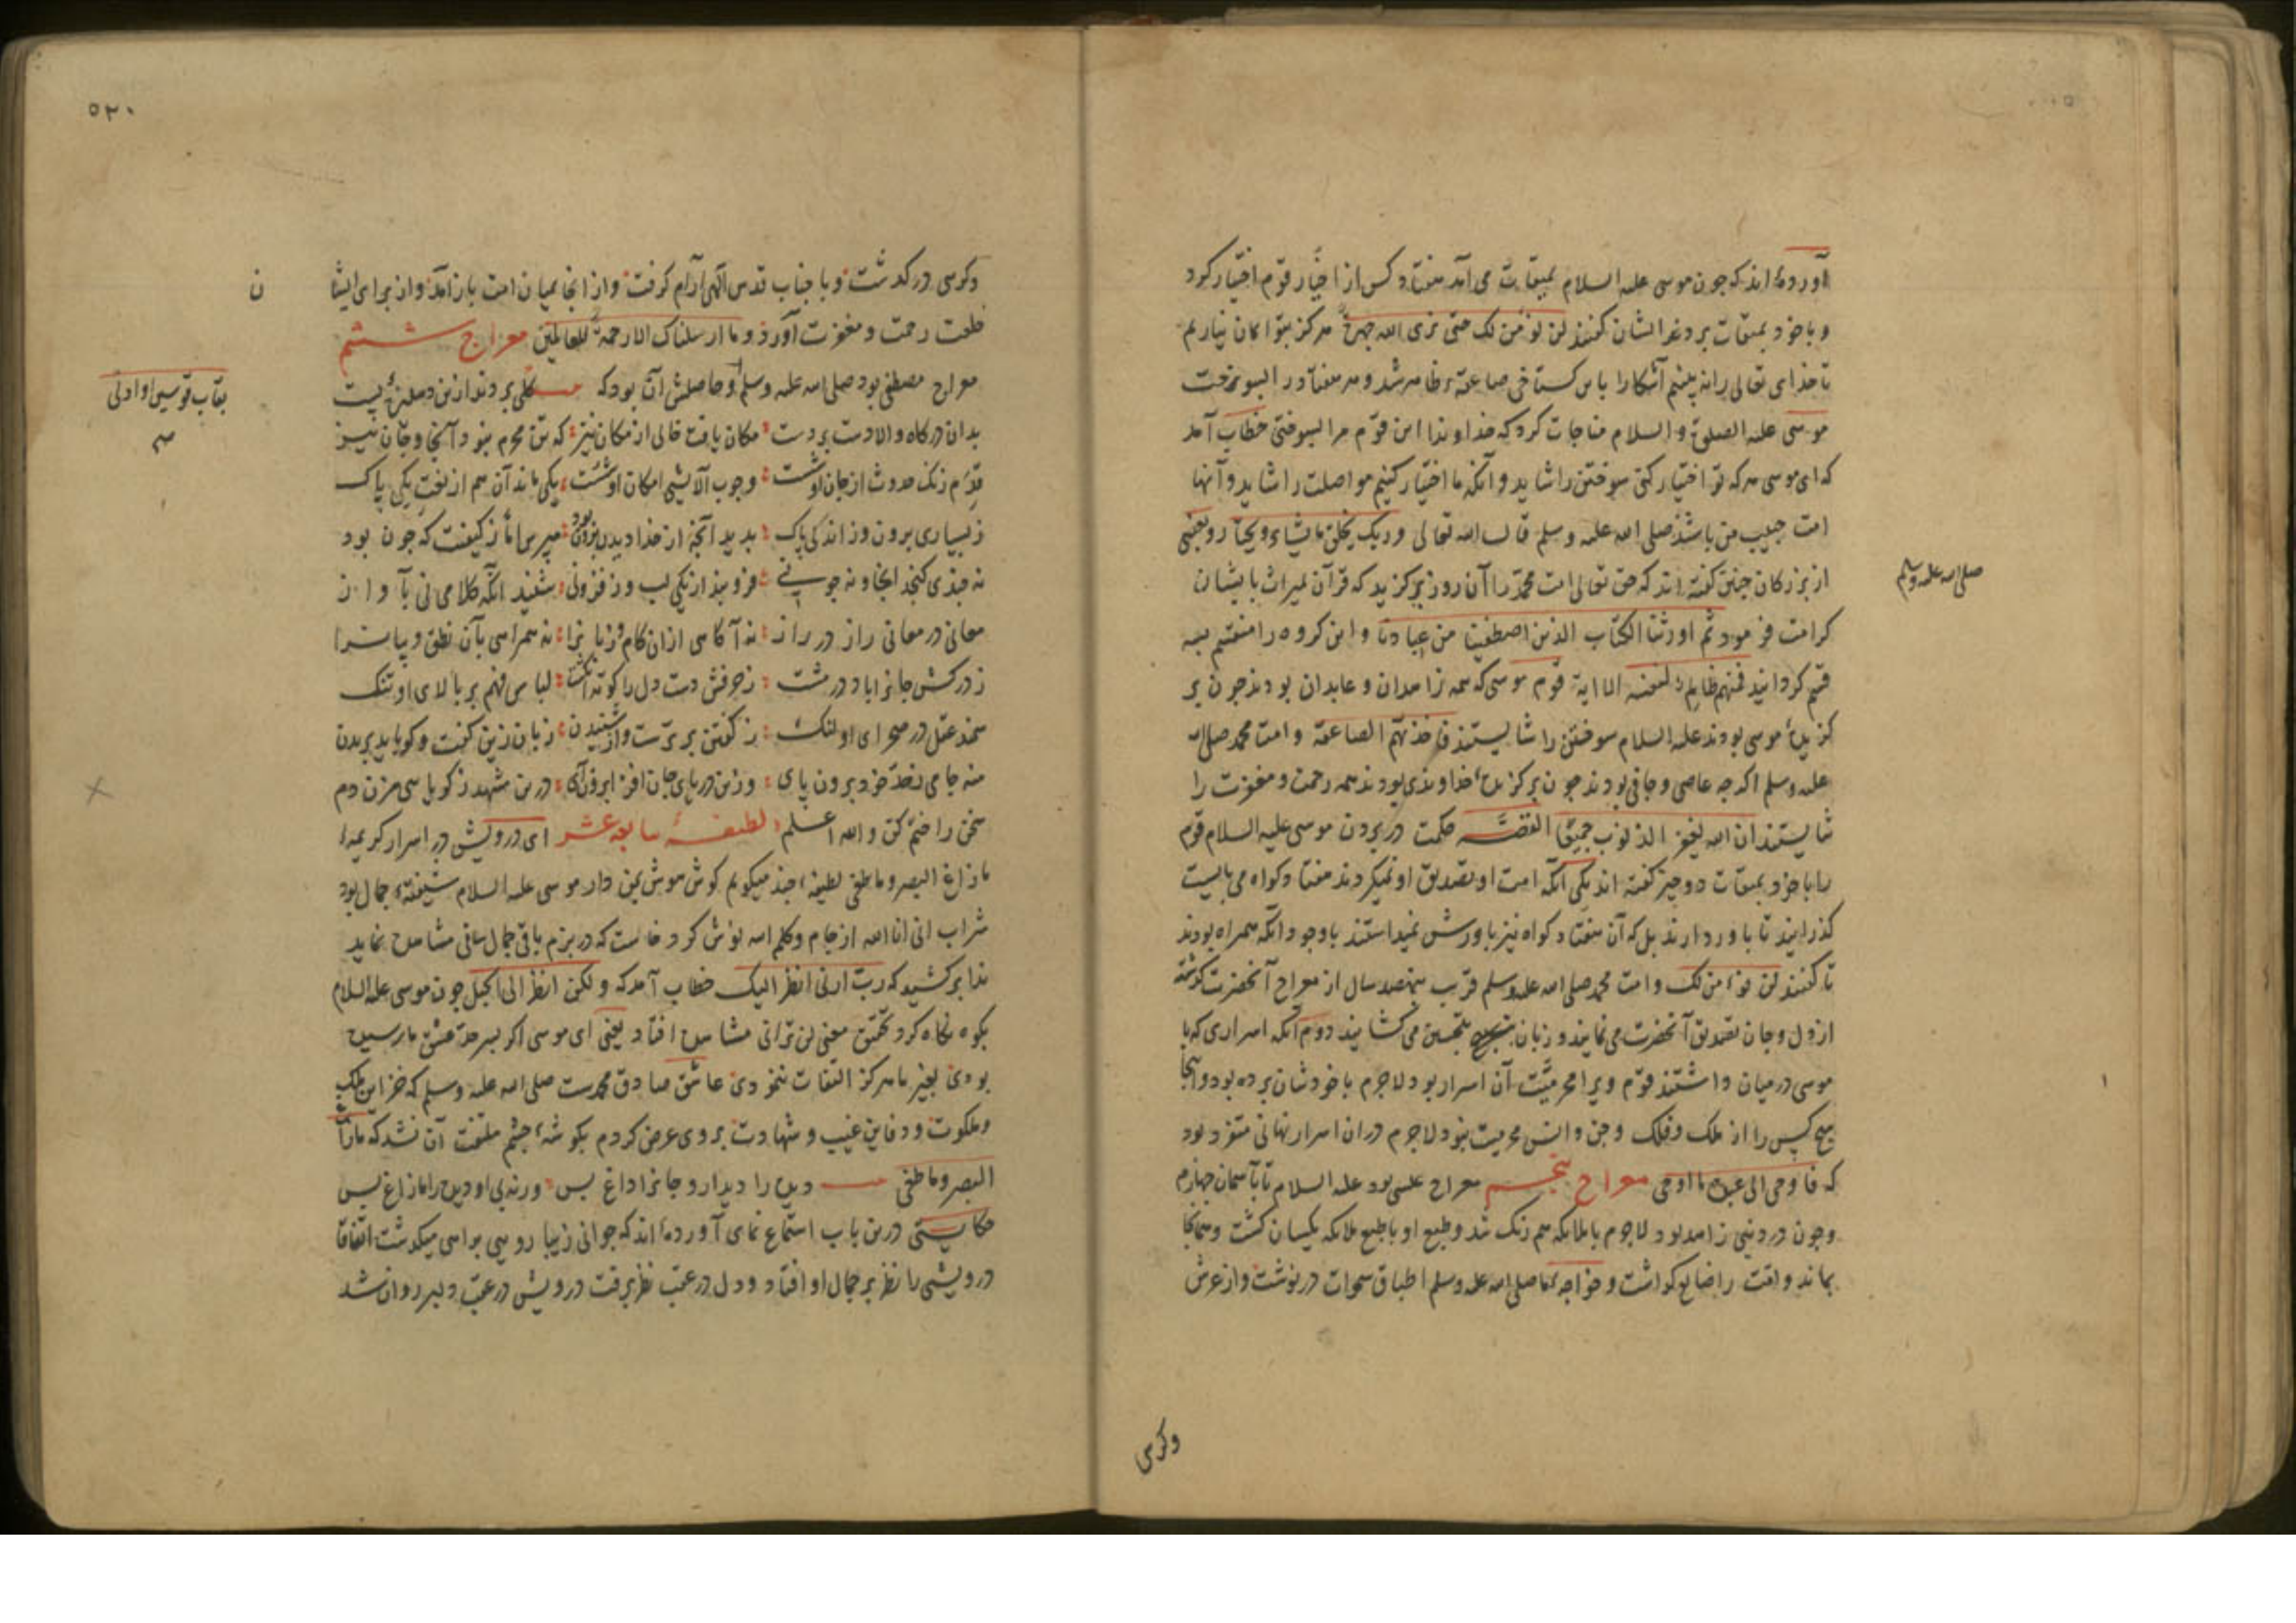 آورده‌اند که چون موسی علیه السلام بمیقات می آمد هفتاد کس از اخیار قوم اختیار کرد
و با خود بمیقات برد غدا ایشان گفتند لن نؤمن لک حتی نری الله جهرة هرگز بتو ایمان نیاریم
تا خدای تعالی را نه بینیم آشکارا باین گستاخی صاعقه ظاهر شد و هر هفتاد را بسوخت
موسی علیه الصلوة و السلام مناجات کرد که خداوندا این قوم مرا بسوختی خطاب آمد
که ای موسی هر که تو اختیار کنی سوختن را شاید و آنکه ما اختیار کنیم مواصلت را شاید و آنها
امت حبیب من باشند صلی الله علیه وسلم قال الله تعالی وربک یخلق ما یشاء ویختار و بعضی
از بزرکان چنین گفته‌اند که حق تعالی امت محمد را آن روز برکزید که قرآن بمیراث بایشان
صلی الله علیه وسلم
کرامت فرمود ثم اورثنا الکتاب الذین اصطفینا من عبادنا و این کروه را منقسم بسه
قسم کردانید فمنهم ظالم لنفسه الایة قوم موسی که همه زاهدان و عابدان بودند چون بر
کزیده موسی بودند علیه السلام سوختن را شایستند فاخذتهم الصاعقة و امت محمد صلی الله
علیه وسلم اکر چه عاصی و جافی بودند چون برکزیده خداوندی بودند همه رحمت و مغفرت را
شایستند ان الله یغفر الذنوب جمیعا القصه حکمت در بردن موسی علیه السلام قوم
را با خود بمیقات دو چیز کفته اند یکی آنکه امت او تصدیق او نمیکردند هفتاد کواه می بایست
کذرانید تا باور دارند بل که آن هفتاد کواه نیز باورش نمیداشتند با وجود آنکه همراه بودند
تا کفتند لن نؤمن لک و امت محمد صلی الله علیه وسلم قرب نهصد سال از معراج آنحضرت کذشته
از دل و جان تصدیق آنحضرت می نمایند و زبان بتحسین می کشایند دوم آنکه اسراری که با
موسی در میان داشتند قوم ویرا محرمیت آن اسرار بود لاجرم با خودشان برده بود و اینجا
هیچ کس را از ملک و فلک و جن و انس محرمیت نبود لاجرم در ان اسرار نهانی متفرد بود
که فاوحی الی عبده ما اوحی معراج پنجم معراج عیسی بود علیه السلام تا بآسمان چهارم
و چون در دنیی زاهد بود لاجرم با ملایکه هم رنک شد و طبع او با طبع ملایکه یکسان کشت و همانجا
بماند و امت را ضایع کذاشت و خواجه ما صلی الله علیه وسلم اطباق سموات در نوشت و از عرش
وکرسی
٥٢٠
وکرسی درکذشت و با جناب قدس الهی آرام کرفت و از انجا بمیان امت باز آمد و از برای ایشان
خلعت رحمت و مغفرت آورد وما ارسلناک الا رحمة للعالمین معراج ششم
معراج مصطفی بود صلی الله علیه وسلم و حاصلش آن بود که
بقاب قوسین او ادنی
بدان درکاه والا دست بردست مکان یافت خالی از مکان نیز که تن محرم نبود آنجا و جان نیز
قدم زنک حدوث از جان او شست وجوب آلایش امکان او شست یکی ماند آن هم از نعت یکی پاک
ز بسیاری برون وز اندکی پاک بدید آنچه از خدا دیدن برون بود مپرس ما ز کیفیت که چون بود
نه چندی کنجد انجا و نه چونی فرو بند از یکی لب وز فزونی شنید آنکه کلامی نی بآواز
معانی در معانی راز در راز نه آکاهی از ان کام و زبانرا نه همراهی بآن نطق و بیانرا
ز درکش جانرا باد در مشت ز حرفش دست دل را کوته انکشت لباس فهم بر بالای او تنک
سمند عقل در صحرای او لنک ز کفتن برترست و از شنیدن زبان زین کفت و کو باید بریدن
منه جامی ز حد خود برون پای وزین دریای جان افزا برون آی درین مشهد ز کویایی مزن دم
سخن را ختم کن والله اعلم لطیفه سابعه عشر ای درویش در اسرار کریمه
ما زاغ البصر وما طغی لطیفه چند میکویم کوش هوش بمن دار موسی علیه السلام شیفته جمال بود
شراب انی انا الله از جام وکلم الله نوش کرد خواست که در بزم باقی جمال ساقی مشاهده نماید
ندا برکشید که رب ارنی انظر الیک خطاب آمد که ولکن انظر الی الجبل چون موسی علیه السلام
بکوه نکاه کرد تحقیق معنی لن ترانی مشاهده افتاد یعنی ای موسی اکر بسر حد عشق ما رسیده
بودی بغیر ما هرکز التفات ننمودی عاشق صادق محمدست صلی الله علیه وسلم که خزاین ملک
و ملکوت و دفاین غیب و شهادت بروی عرض کردم بکوشه چشم ملتفت آن نشد که ما زاغ
البصر وما طغی دیده را دیدار و جانرا داغ بس ورنه بی او دیده را ما زاغ بس
حکایتی درین باب استماع نمای آورده‌اند که جوانی زیبا رویی براهی میکذشت اتفاقا
درویشی را نظر بر جمال او افتاد و دل در عقب نظر برفت درویش در عقب دلبر روان شد